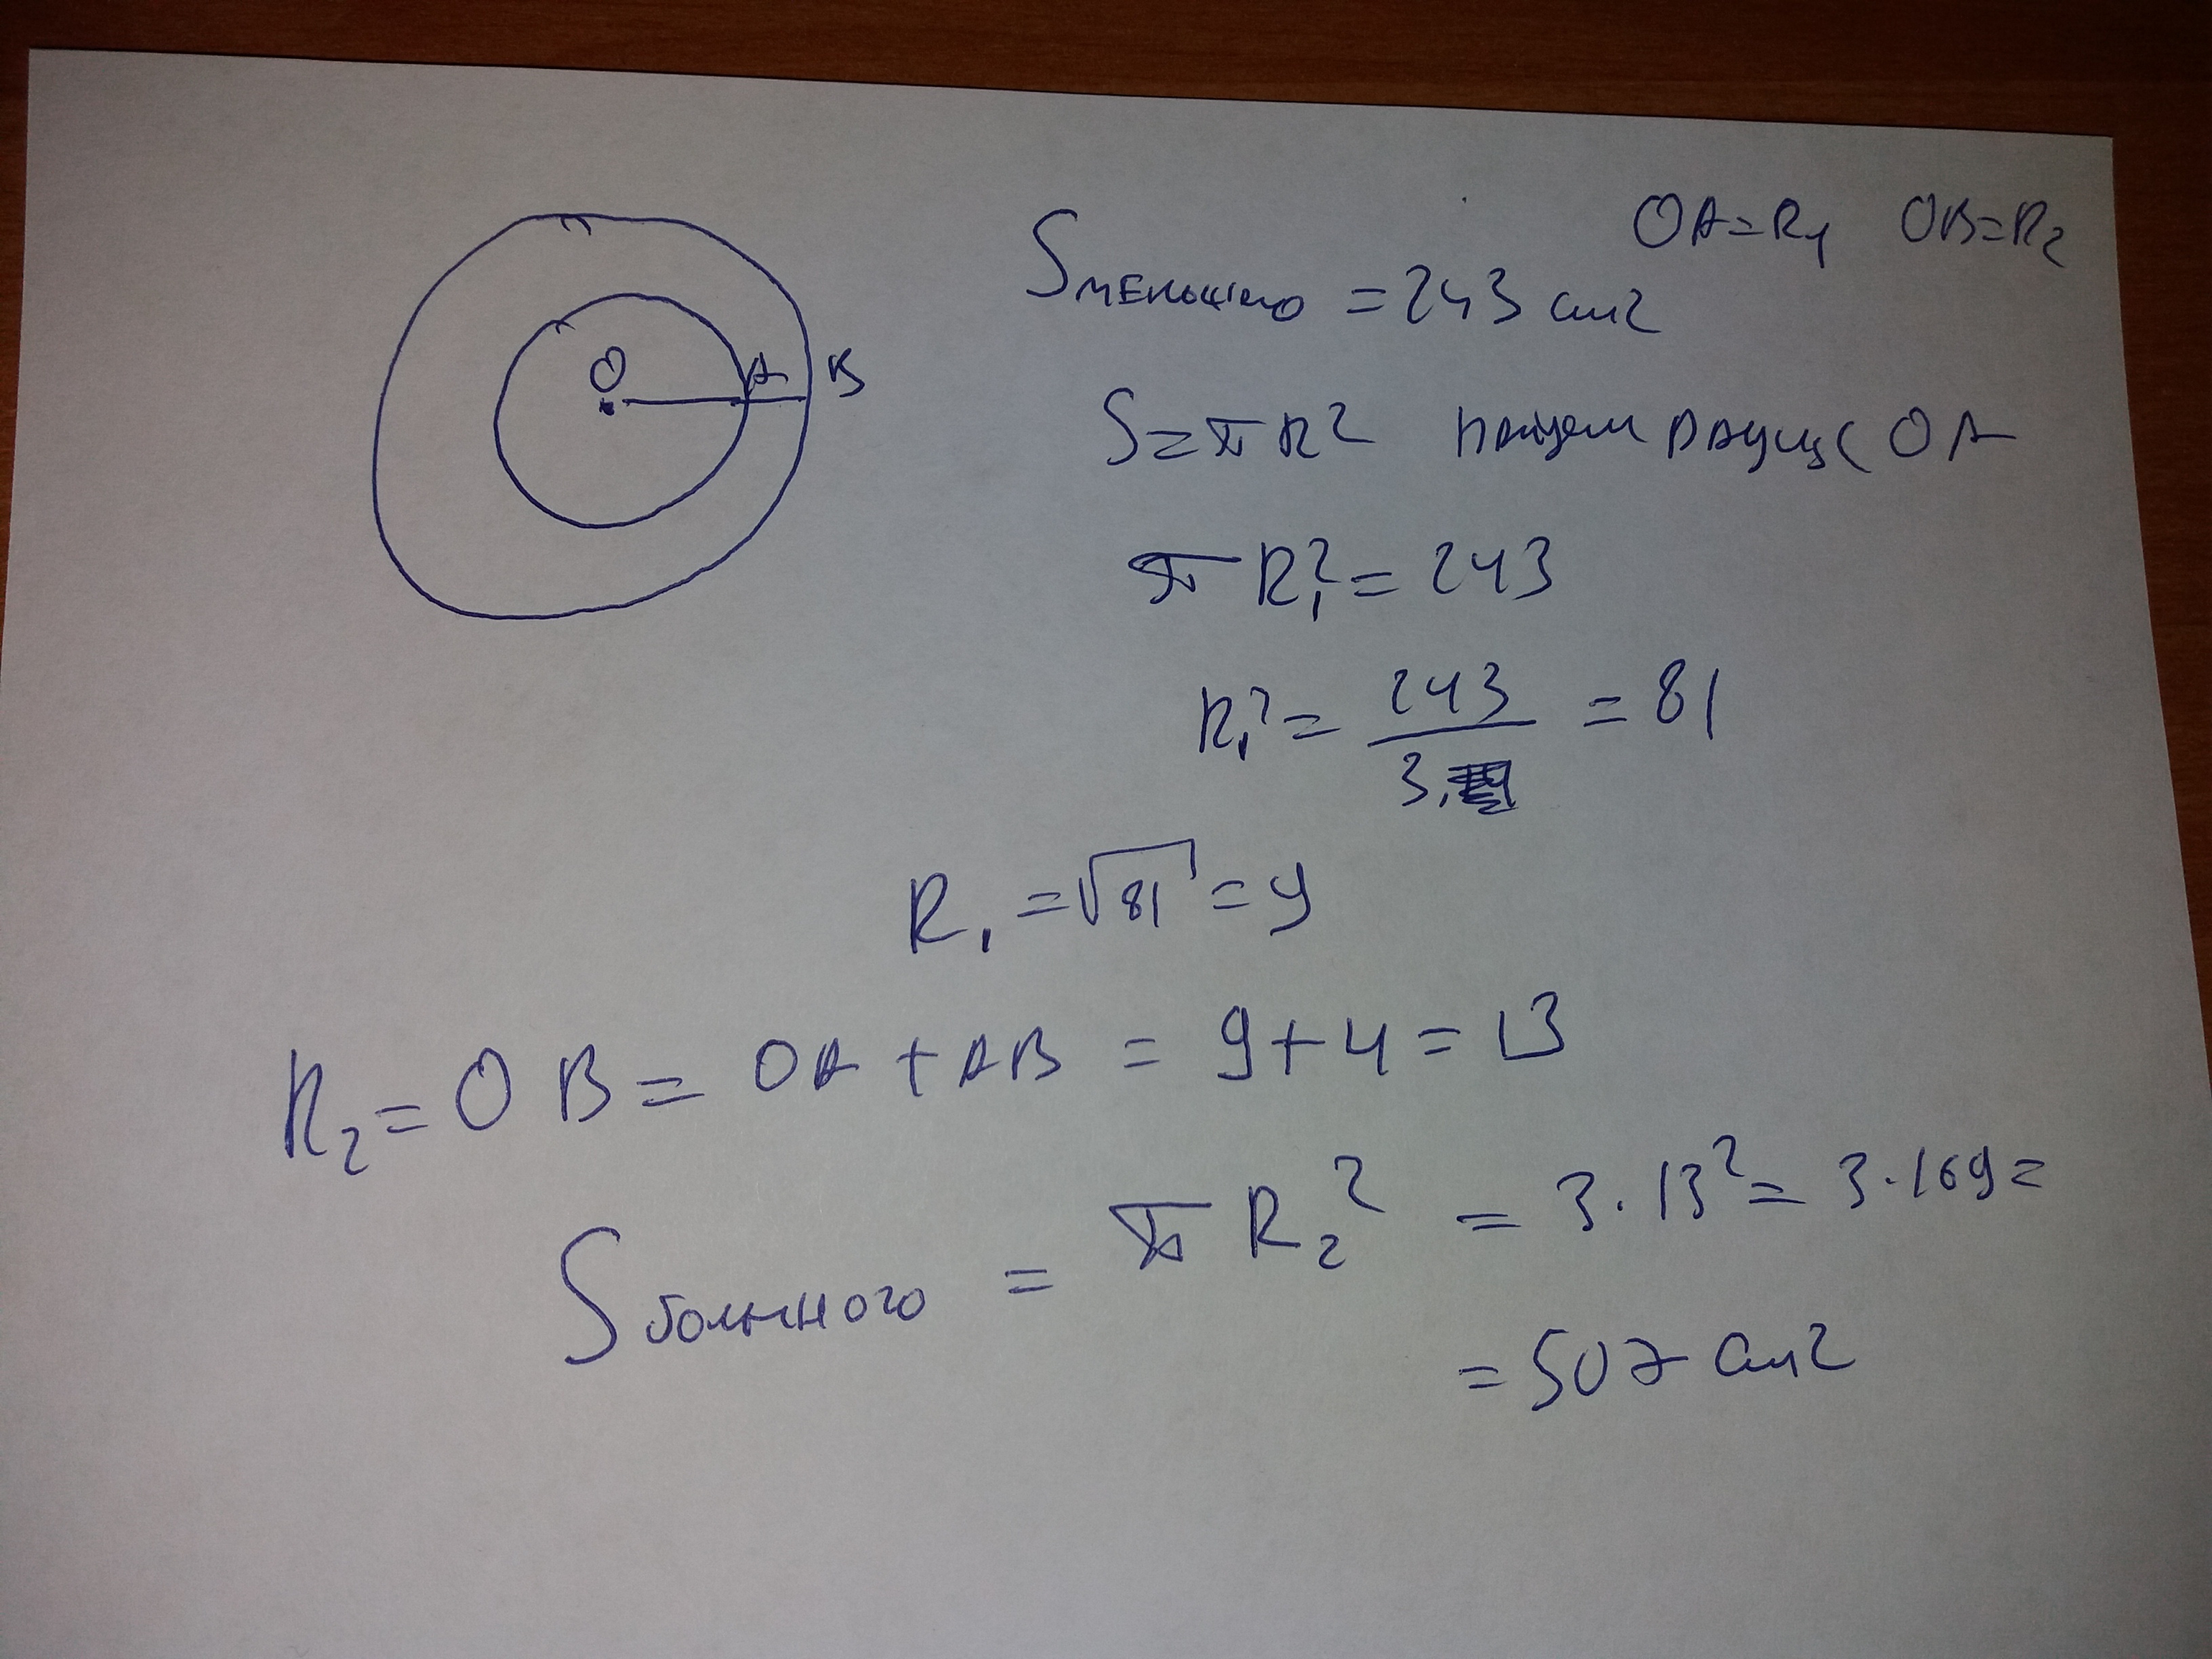 OA=R₁ OB=R₂
Sменьшего = 243 см2
O A B
S=πR² найдем радиус OA
πR₁²=243
R₁²= 243/3 = 81
R₁ =√81 = 9
R₂= OB = OA + AB = 9+4=13
Sбольшого = πR₂² = 3·13²= 3·169=
= 507 см2